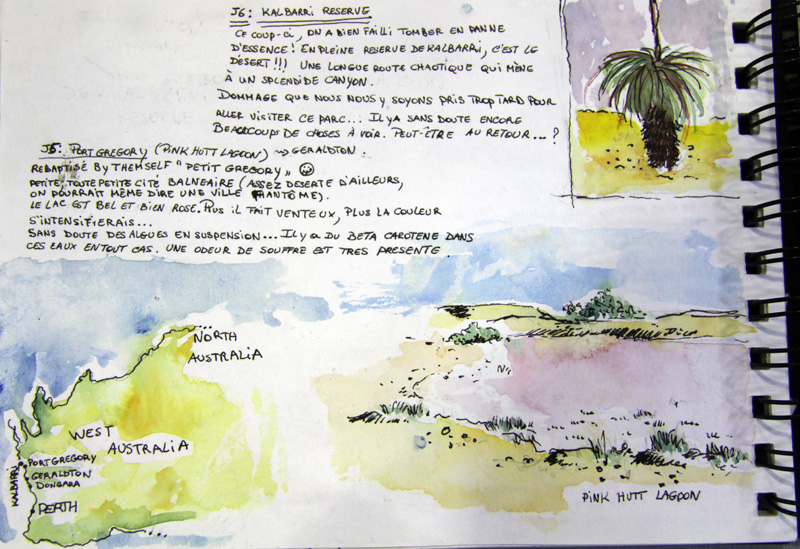 J6: KALBARRI RESERVE.
CE COUP-CI, ON A BIEN FAILLI TOMBER EN PANNE
D'ESSENCE! EN PLEINE RESERVE DE KALBARRI, C'EST LE
DÉSERT!!) UNE LONGUE ROUTE CHAOTIQUE QUI MÈNE
À UN SPLENDIDE CANYON.
DOMMAGE QUE NOUS NOUS Y SOYONS PRIS TROP TARD POUR
ALLER VISITER CE PARC... IL YA SANS DOUTE ENCORE
BEAUCOUPS DE CHOSES À VOIR. PEUT-ÊTRE AU RETOUR...?
J5: PORT GREGORY (PINK HUTT LAGOON) → GERALDTON.
REBAPTISÉ BY THEMSELF "PETIT GREGORY"
PETITE, TOUTE PETITE CITÉ BALNEAIRE (ASSEZ DESERTE D'AILLEURS,
ON POURRAIT MÊME DIRE UNE VILLE FANTÔME).
LE LAC EST BEL ET BIEN ROSE. PLUS IL FAIT VENTEUX, PLUS LA COULEUR
S'INTENSIFIERAIS...
SANS DOUTE DES ALGUES EN SUSPENSION... IL YA DU BETA CAROTENE DANS
CES EAUX EN TOUT CAS. UNE ODEUR DE SOUFFRE EST TRES PRESENTE.
NORTH
AUSTRALIA
WEST
AUSTRALIA
KALBARRI
PORT GREGORY
GERALDTON
DONGARA
PERTH
PINK HUTT LAGOON